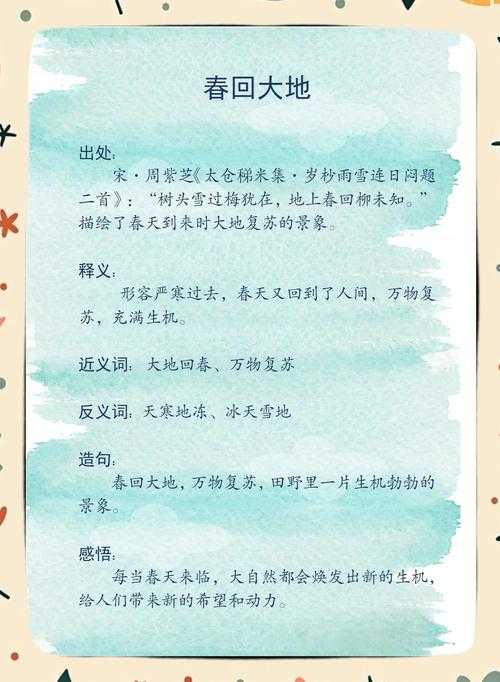 春回大地
出处:
宋·周紫芝《太仓梯米集·岁杪雨雪连日闷题
二首》:“树头雪过梅犹在,地上春回柳未知。”
描绘了春天到来时大地复苏的景象。
释义:
形容严寒过去,春天又回到了人间,万物复
苏,充满生机。
近义词: 大地回春、万物复苏
反义词: 天寒地冻、冰天雪地
造句:
春回大地,万物复苏,田野里一片生机勃勃的
景象。
感悟:
每当春天来临,大自然都会焕发出新的生机,
给人们带来新的希望和动力。